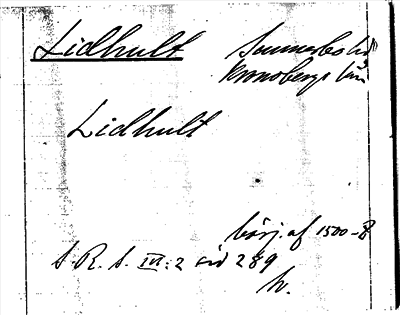 Lidhult
Sunnerbo hd
Kronobergs län
Lidhult
börj. af 1500-t
S. R. S. III: 2 sid 289
h.